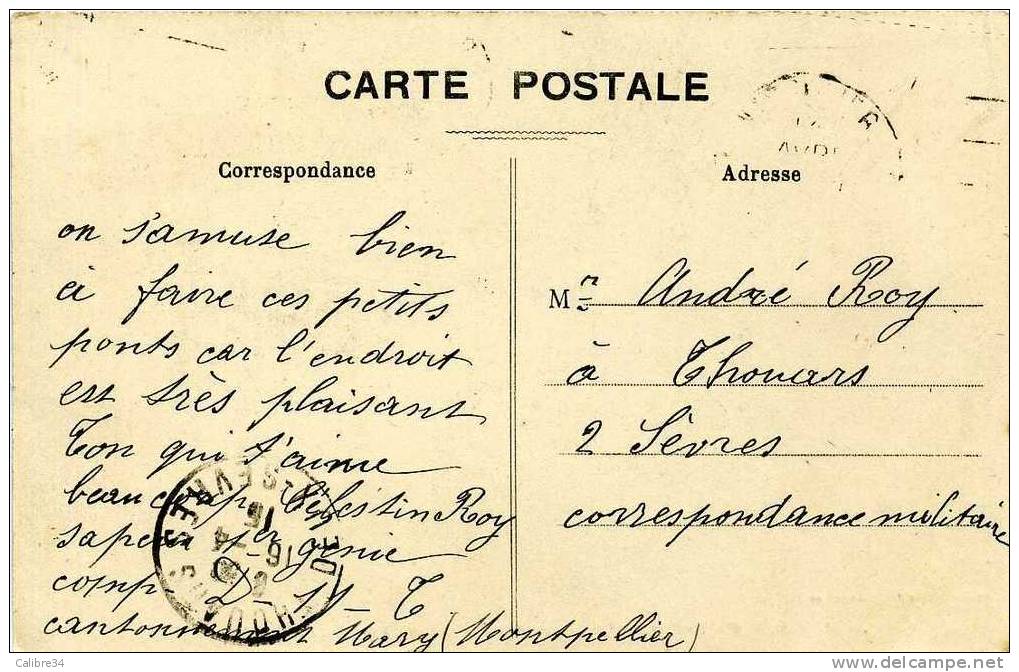 CARTE POSTALE
Correspondance
on s'amuse bien
à faire ces petits
ponts car l'endroit
est très plaisant
Ton qui t'aime
beaucoup Célestin Roy
sapeur 1er génie
comp D- 11 T
cantonnement Mary (Montpellier)
Adresse
Mr André Roy
à Thouars
2 Sèvres
correspondance militaire
THOUARS
DEUX-SEVRES
16 -4
15
Calibre34
www.delcampe.net